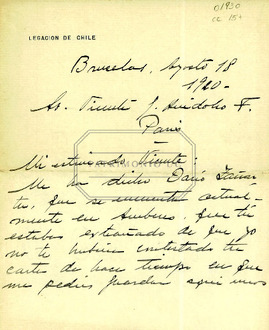 01930
ce 154
LEGACION DE CHILE
Bruselas, Agosto 18
1920-
Sr. Vicente G. Huidobro F.
Paris
Mi estimado Vicente:
Me ha dicho Darío
que se encuentra actual-
mente en Amberes, que tú
estabas extrañado de que yo
no te hubiera contestado tu
carta de hace tiempo en que
me pedías guardar aquí unos